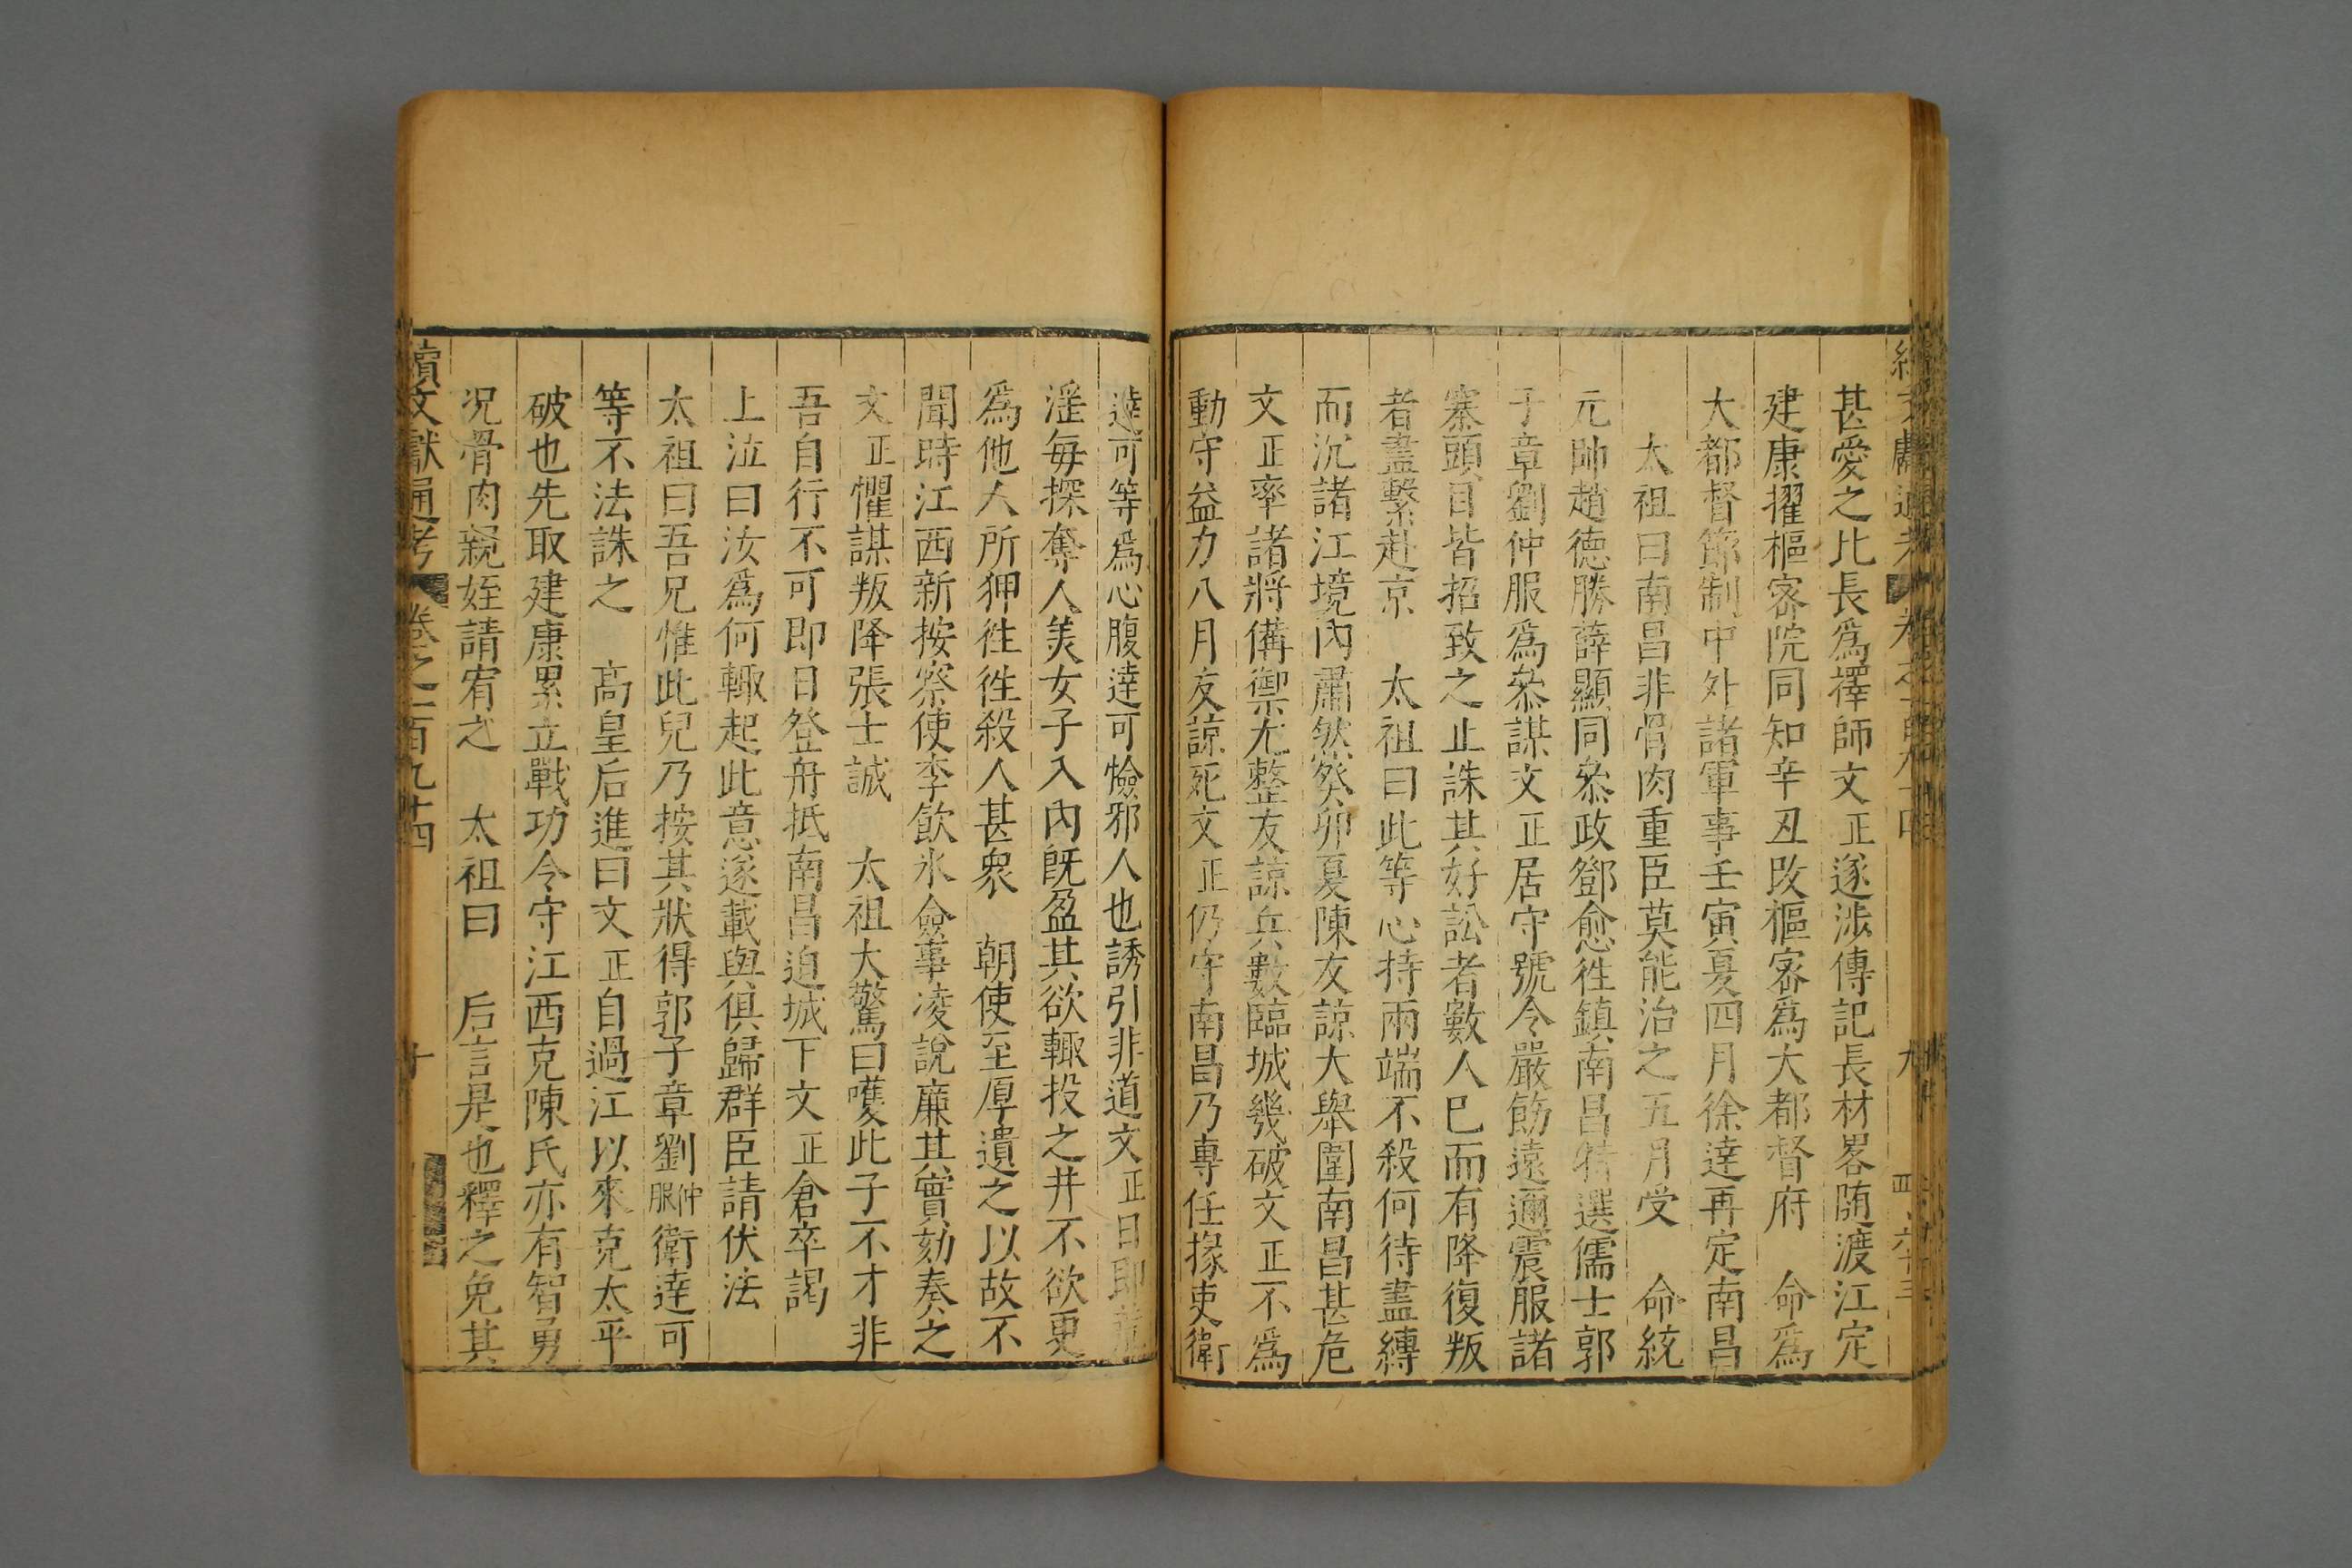 甚愛之比長爲擇師文正遂涉傳記長材畧随渡江定
建康擢樞密院同知辛丑改樞密爲大都督府　命爲
大都督節制中外諸軍事壬寅夏四月徐達再定南昌
太祖曰南昌非骨肉重臣莫能治之五月受　命統
元帥趙德勝薛顯同叅政鄧愈徃鎮南昌特選儒士郭
子章劉仲服爲叅謀文正居守號令嚴飭遠邇震服諸
寨頭目皆招致之止誅其好訟者數人巳而有降復叛
者盡繫赴京　太祖曰此等心持兩端不殺何待盡縛
而沉諸江境內肅然癸卯夏陳友諒大舉圍南昌甚危
文正率諸將備禦尤整友諒兵數臨城幾破文正不爲
動守益力八月友諒死文正仍守南昌乃專任掾吏衛
達可等爲心腹達可憸邪人也誘引非道文正日即
滛每探奪人美女子入內旣盈其欲輙投之井不欲更
爲他人所狎徃徃殺人甚衆　朝使至厚遺之以故不
聞時江西新按察使李飲氷僉事凌說廉其實劾奏之
文正懼謀叛降張士誠　太祖大驚曰嚄此子不才非
吾自行不可即日登舟抵南昌迫城下文正倉卒謁
上泣曰汝爲何輙起此意遂載與俱歸群臣請伏法
太祖曰吾兄惟此兒乃按其狀得郭子章劉仲服衛達可
等不法誅之　高皇后進曰文正自過江以來克太平
破也先取建康累立戰功今守江西克陳氏亦有智勇
况骨肉親姪請宥之　太祖曰　后言是也釋之免其
續文獻通考　卷之一百九十四　十